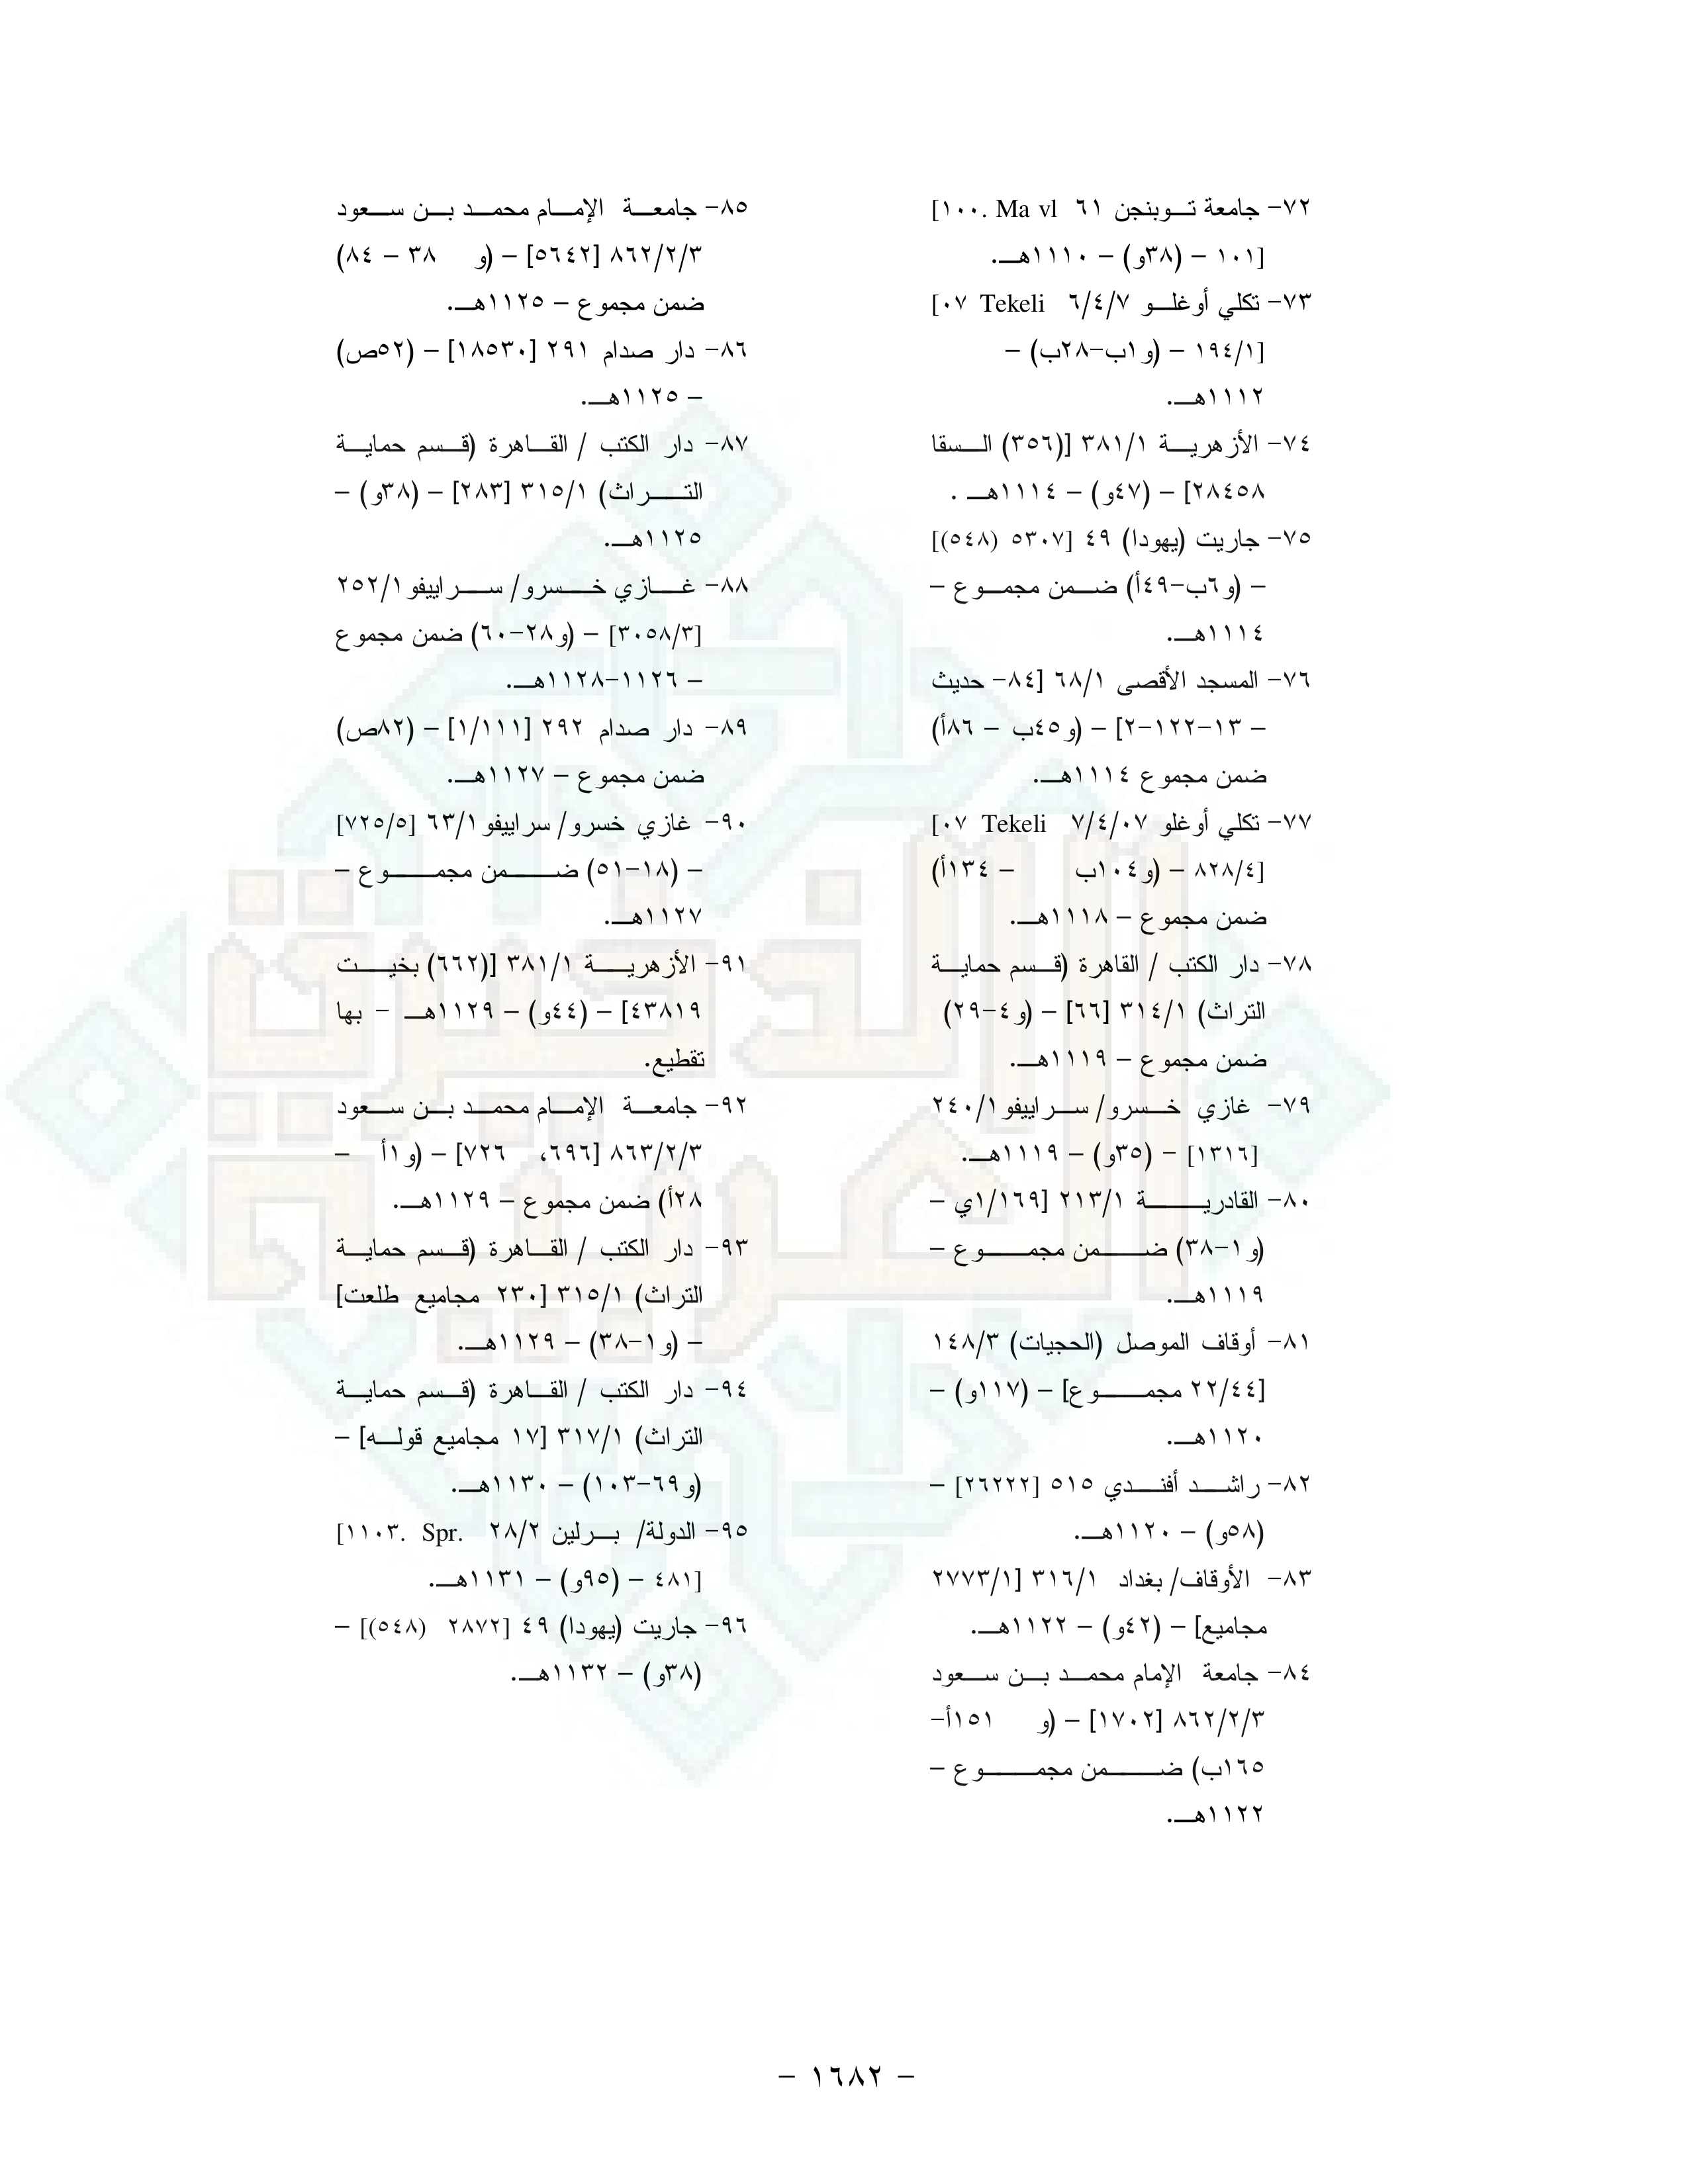 ٧٢- جامعة توبنجن ٦١ [١٠٠. Ma vl
١٠١] – (٣٨و) – ١١١٠هـ.
٧٣- تكلي أوغلو ٦/٤/٧ [٠٧ Tekeli
١٩٤/١] – (و١ب-٢٨ب) –
١١١٢هـ.
٧٤- الأزهرية ٣٨١/١ [(٣٥٦) السقا
٢٨٤٥٨] – (٤٧و) – ١١١٤هـ .
٧٥- جاريت (يهودا) ٤٩ [٥٣٠٧ (٥٤٨)]
– (و٦ب-٤٩أ) ضمن مجموع –
١١١٤هـ.
٧٦- المسجد الأقصى ٦٨/١ [٨٤- حديث
– ١٣-١٢٢-٢] – (و٤٥ب – ٨٦أ)
ضمن مجموع ١١١٤هـ.
٧٧- تكلي أوغلو ٧/٤/٠٧ [٠٧ Tekeli
٨٢٨/٤] – (و١٠٤ب – ١٣٤أ)
ضمن مجموع – ١١١٨هـ.
٧٨- دار الكتب / القاهرة (قسم حماية
التراث) ٣١٤/١ [٦٦] – (و٤-٢٩)
ضمن مجموع – ١١١٩هـ.
٧٩- غازي خسرو/ سراييفو ٢٤٠/١
[١٣١٦] – (٣٥و) – ١١١٩هـ.
٨٠- القادرية ٢١٣/١ [١/١٦٩ي –
(و١-٣٨) ضمن مجموع –
١١١٩هـ.
٨١- أوقاف الموصل (الحجيات) ١٤٨/٣
[٢٢/٤٤ مجموع] – (١١٧و) –
١١٢٠هـ.
٨٢- راشد أفندي ٥١٥ [٢٦٢٢٢] –
(٥٨و) – ١١٢٠هـ.
٨٣- الأوقاف/ بغداد ٣١٦/١ [٢٧٧٣/١
مجاميع] – (٤٢و) – ١١٢٢هـ.
٨٤- جامعة الإمام محمد بن سعود
٨٦٢/٢/٣ [١٧٠٢] – (و ١٥١أ-
١٦٥ب) ضمن مجموع –
١١٢٢هـ.
٨٥- جامعة الإمام محمد بن سعود
٨٦٢/٢/٣ [٥٦٤٢] – (و ٣٨ – ٨٤)
ضمن مجموع – ١١٢٥هـ.
٨٦- دار صدام ٢٩١ [١٨٥٣٠] – (٥٢ص)
– ١١٢٥هـ.
٨٧- دار الكتب / القاهرة (قسم حماية
التراث) ٣١٥/١ [٢٨٣] – (٣٨و) –
١١٢٥هـ.
٨٨- غازي خسرو/ سراييفو ٢٥٢/١
[٣٠٥٨/٣] – (و٢٨-٦٠) ضمن مجموع
– ١١٢٦-١١٢٨هـ.
٨٩- دار صدام ٢٩٢ [١/١١١] – (٨٢ص)
ضمن مجموع – ١١٢٧هـ.
٩٠- غازي خسرو/ سراييفو ٦٣/١ [٧٢٥/٥]
– (١٨-٥١) ضمن مجموع –
١١٢٧هـ.
٩١- الأزهرية ٣٨١/١ [(٦٦٢) بخيت
٤٣٨١٩] – (٤٤و) – ١١٢٩هـ - بها
تقطيع.
٩٢- جامعة الإمام محمد بن سعود
٨٦٣/٢/٣ [٦٩٦، ٧٢٦] – (و١أ –
٢٨أ) ضمن مجموع – ١١٢٩هـ.
٩٣- دار الكتب / القاهرة (قسم حماية
التراث) ٣١٥/١ [٢٣٠ مجاميع طلعت]
– (و١-٣٨) – ١١٢٩هـ.
٩٤- دار الكتب / القاهرة (قسم حماية
التراث) ٣١٧/١ [١٧ مجاميع قوله] –
(و٦٩-١٠٣) – ١١٣٠هـ.
٩٥- الدولة/ برلين ٢٨/٢ [١١٠٣. Spr.
٤٨١] – (٩٥و) – ١١٣١هـ.
٩٦- جاريت (يهودا) ٤٩ [٢٨٧٢ (٥٤٨)] –
(٣٨و) – ١١٣٢هـ.
– ١٦٨٢ –
الذخيرة
العربية